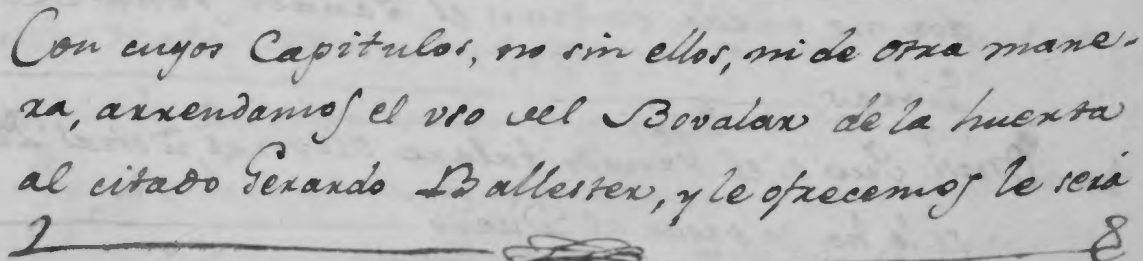 Con cuyos Capitulos, no sin ellos, ni de otra mane-
ra, arrendamos el vso del Bovalar de la huerta
al citado Gerardo Ballester, y le ofrecemos le será